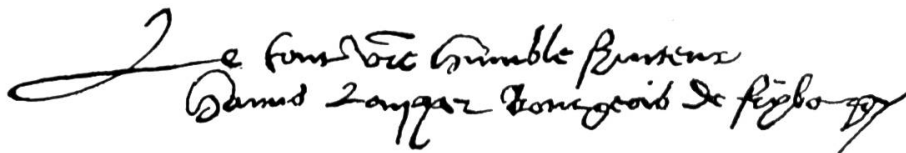 Le tout vre humble serviteur
Hanns bourgeois de frybourg